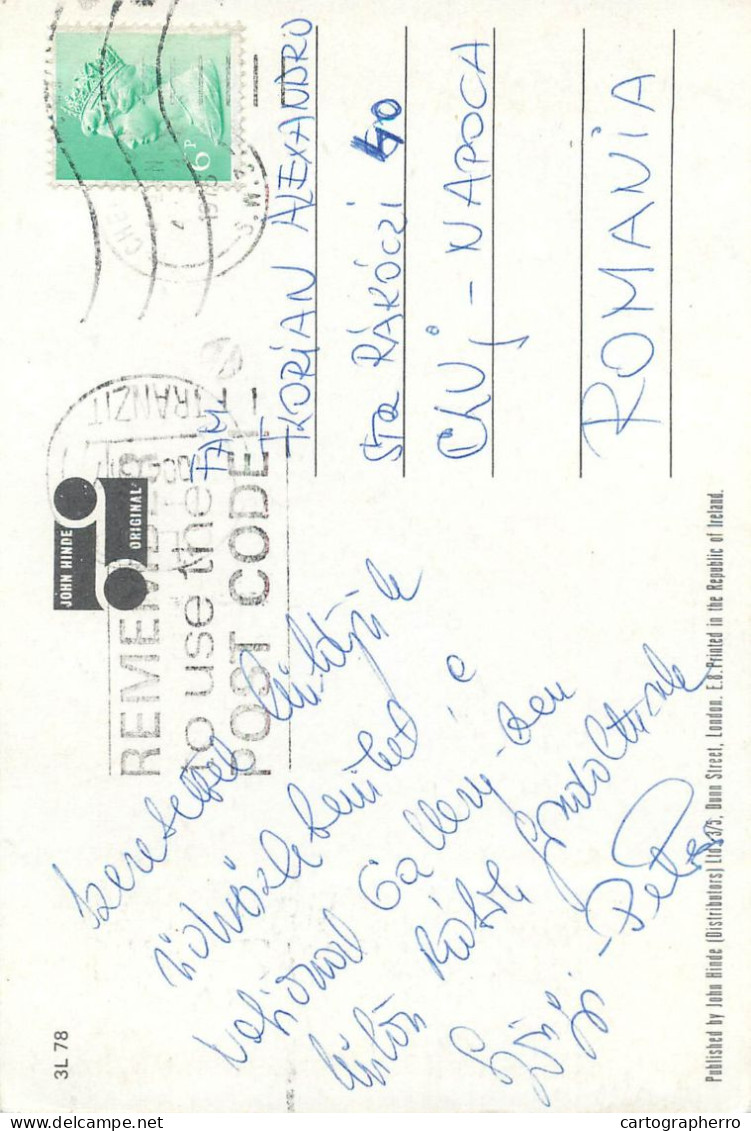 3L 78
JOHN HINDE
ORIGINAL
6P
S.W.3
TRANZIT
REMEMBER
to use the
POST CODE
Szeretettel küldjük
üdvözleteinket a
National Gallery-ben
külön Rátok gondoltunk
Péter
FAM
ALEXANDRU
STR RÁKÓCZI 40
CLUj - NAPOCA
ROMANIA
Published by John Hinde (Distributors) Ltd., 3/5, Dunn Street, London, E.8. Printed in the Republic of Ireland.
cartographerro @ delcampe.net